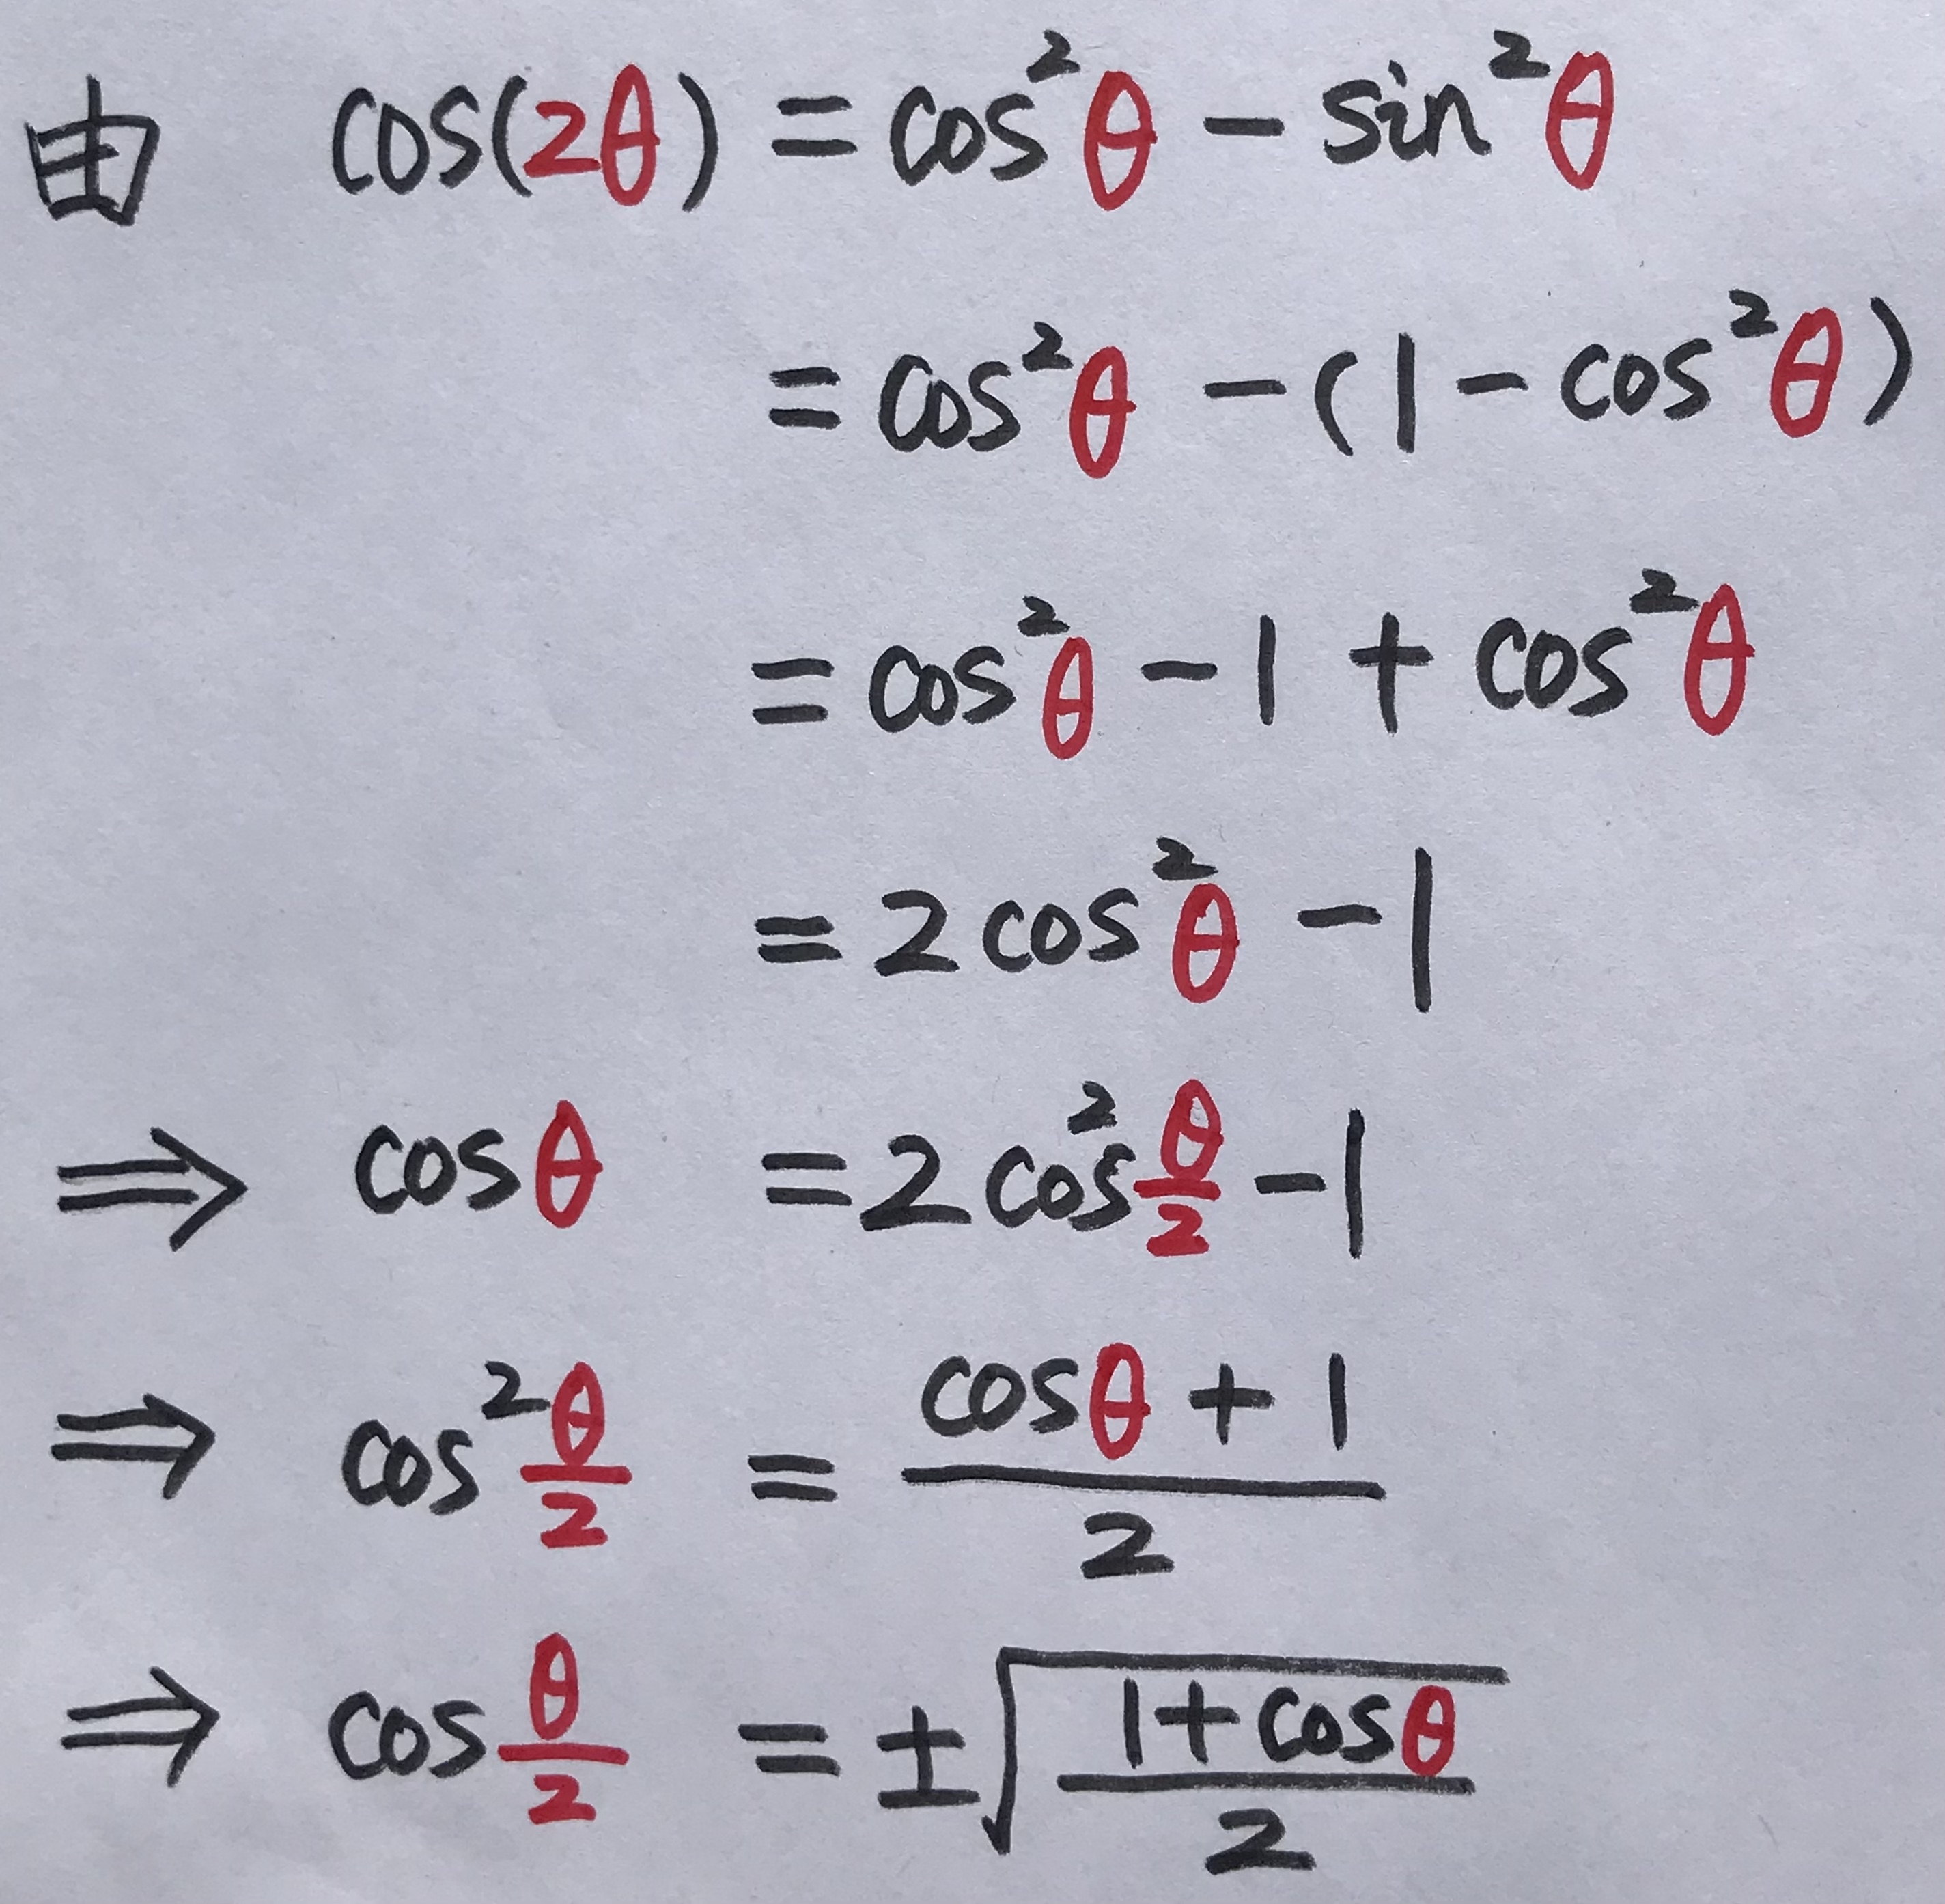 由 cos(2θ) = cos²θ − sin²θ
= cos²θ − (1 − cos²θ)
= cos²θ − 1 + cos²θ
= 2cos²θ − 1
⇒ cosθ = 2cos²\frac{θ}{2} − 1
⇒ cos²\frac{θ}{2} = \frac{cosθ + 1}{2}
⇒ cos\frac{θ}{2} = ±\sqrt{\frac{1 + cosθ}{2}}